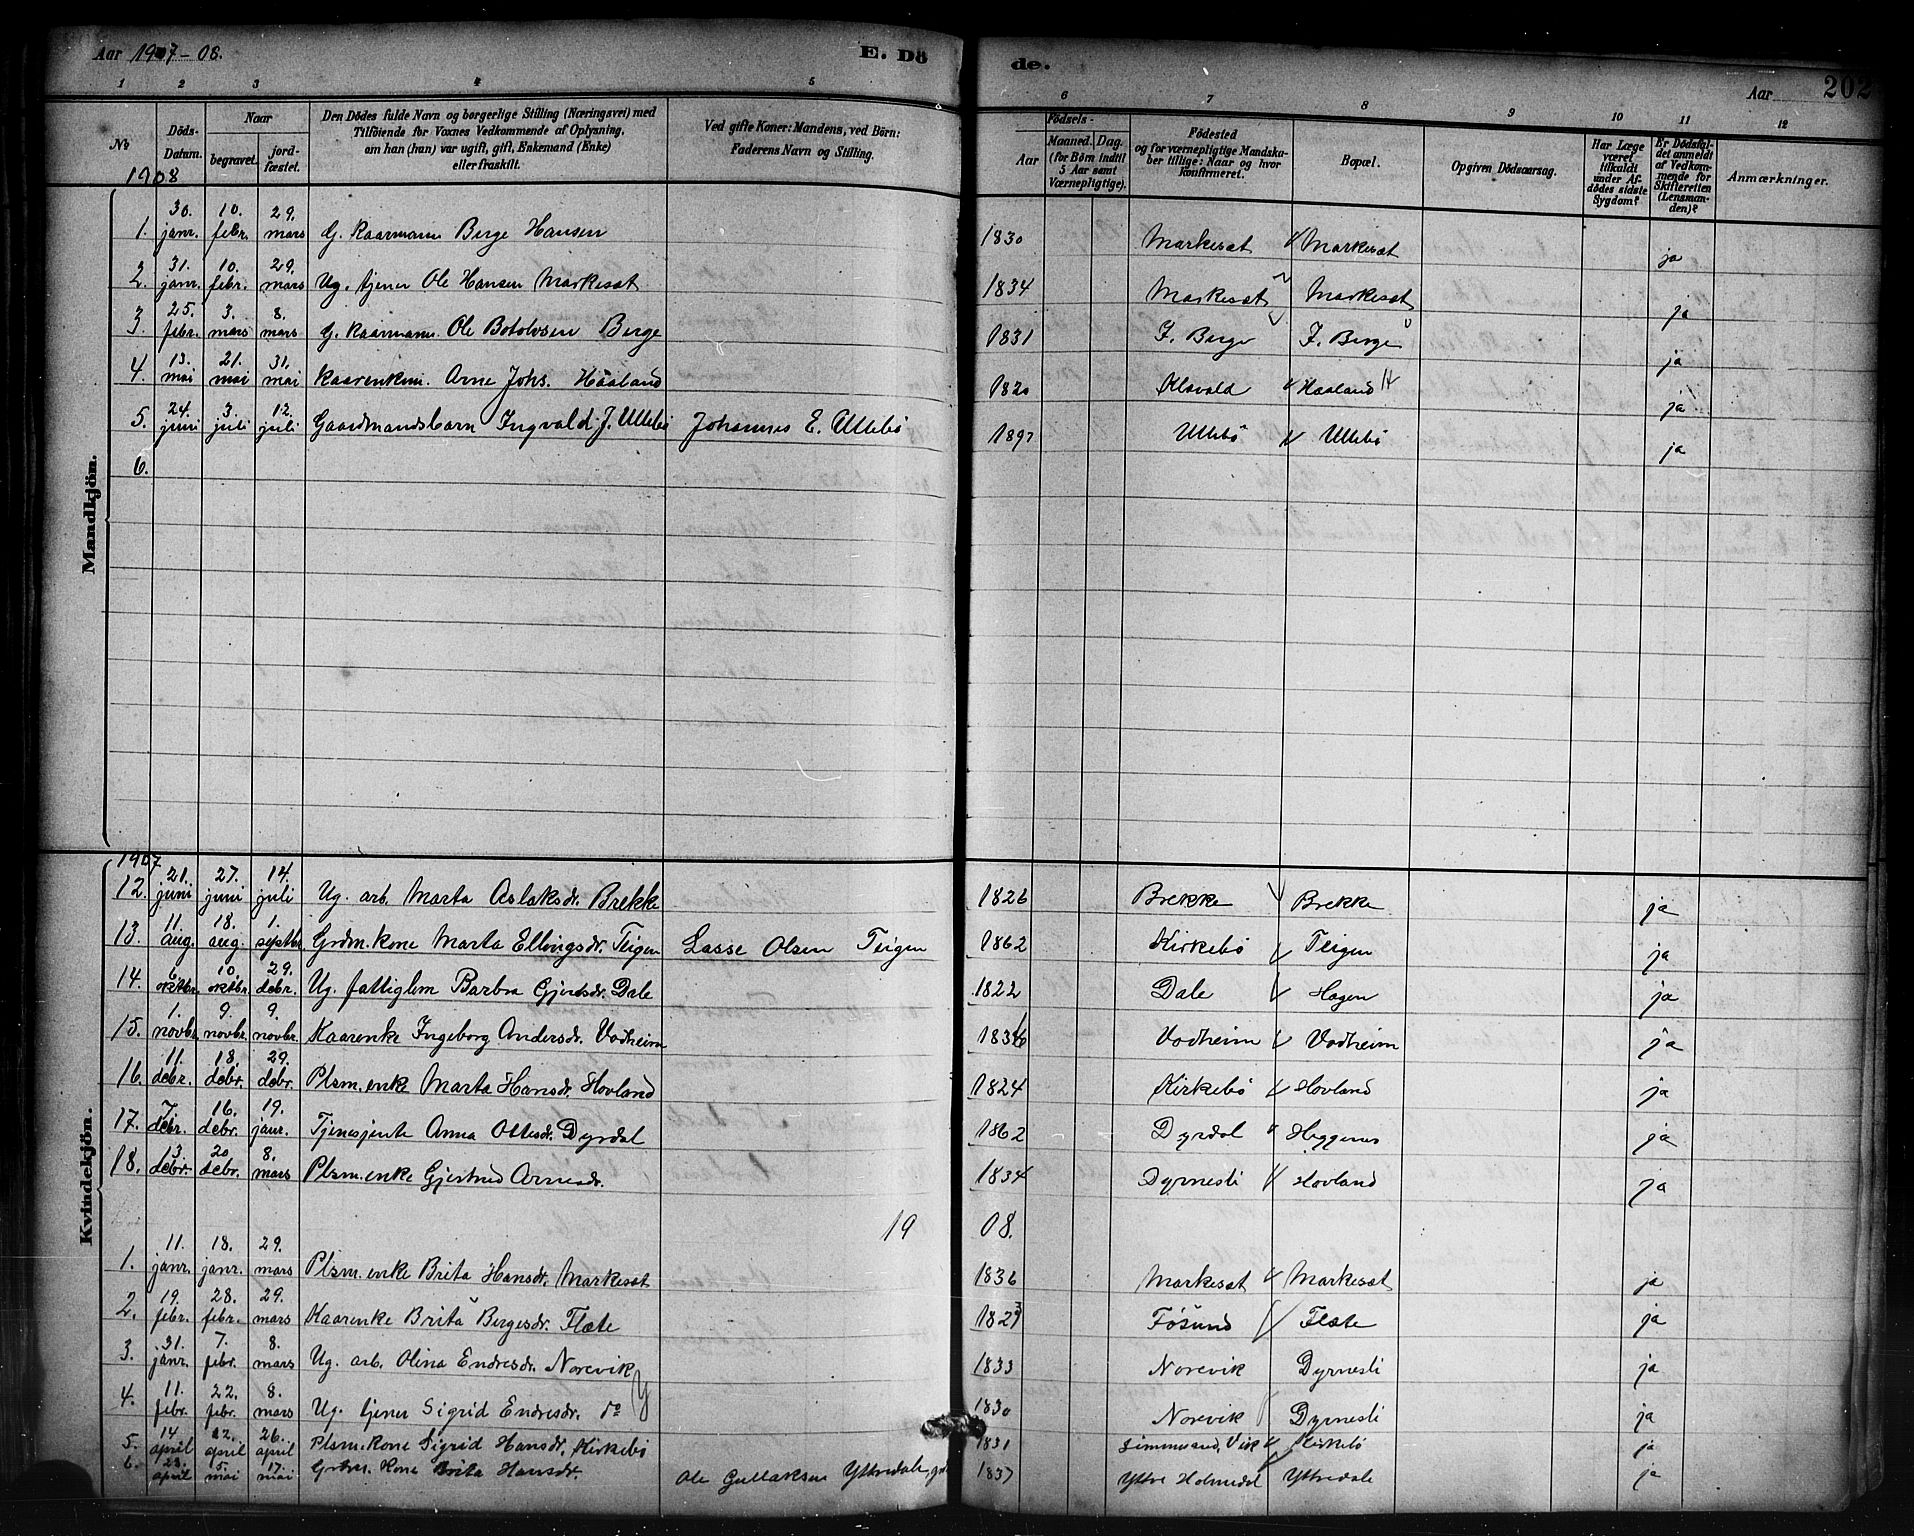 Aar 1907-08.
E. Dö
de.
Aar
202
1 2 3 4 5 6 7 8 9 10 11 12
No
Döds-Datum.
Naar
begravet.
jord-fæstet.
Den Dödes fulde Navn og borgerlige Stilling (Næringsvei) med
Tilföiende for Voxnes Vedkommende af Oplysning,
om han (hun) var ugift, gift, Enkemand (Enke)
eller fraskilt.
Ved gifte Koner: Mandens, ved Börn:
Faderens Navn og Stilling.
Födsels-
Aar
Maaned. Dag.
(for Börn indtil
5 Aar samt
Værnepligtige).
Födested
og for værnepligtige Mandska-
ber tillige: Naar og hvor
konfirmeret.
Bopæl.
Opgiven Dödsaarsag.
Har Læge
været
tilkaldt
under Af-
dödes sidste
Sygdom?
Er Dödsfal-
det anmeldt
af Vedkom-
mende for
Skifteretten
(Lensman-
den)?
Anmærkninger.
Mandkjön.
1908
1. 30. janr. 10. febr. 29. mars G. kaarmann Berge Hansen 1830 Markesæt Markesæt ja
2. 31. janr. 10. febr. 29. mars Ug. tjener Ole Hansen Markesæt 1834 Markesæt Markesæt ja
3. 25. febr. 3. mars 8. mars G. kaarmann. Ole Botolvsen Berge 1831 I. Berge I. Berge ja
4. 13. mai 21. mai 31. mai Kaarenkm. Arne Johs. Haaland 1820 Haaland ja
5. 24. juni 3. juli 12. juli Gaardmandsbarn Ingvald J. Ullebö Johannes E. Ullebö 1897 Ullebö Ullebö ja
6.
Kvindekjön.
1907
12. 21. juni 27. juni 14. juli Ug. arb. Marta Aslaksdr. Brekke 1826 Brekke Brekke ja
13. 11. aug. 18. aug. 1. septbr. Grdm. kone Marta Ellingsdr. Teigen Lasse Olsen Teigen 1862 Kirkebö Teigen ja
14. 6. oktbr. 10. oktbr. 29. debr. Ug. fattiglem Barbra Gjertsdr. Dale 1822 Dale Hagen ja
15. 1. novbr. 9. novbr. 9. novbr. Kaarenke Ingeborg Andersdr. Vadheim Vadheim Vadheim ja
16. 11. debr. 18. debr. 29. debr. Plsm. enke Marta Hansdr. Hovland 1824 Kirkebö Hovland ja
17. 7. debr. 16. debr. 19. janr. Tjenesjente Anna Ottesdr. Dyrdal 1862 Dyrdal ja
18. 13. debr. 20 debr. 8. mars Plsm. enke Gjertrud Arnesdr. 1834 Dyrnesli Hovland ja
19 08.
1. 11. janr. 18. janr. 29. mars Plsm. enke Brita Hansdr. Markesæt 1836 Markesæt Markesæt ja
2. 19. febr. 28. febr. 29. mars Kaarenke Brita Bergesdr. Flæte Fösund Flæte ja
3. 31. janr. 7. febr. 8. mars Ug. arb. Olina Endresdr. Norevik 1833 Norevik Dyrnesli ja
4. 11. febr. 22. febr. 8. mars Ug. tjener Sigrid Endresdr. do 1830 Norevik Dyrnesli ja
5. 14 april 22. april 26. april Plsm. kone Sigrid Hansdr. Kirkebö 1831 Vik Kirkebö ja
6. 23. april 5. mai 17. mai Grdm. kone Brita Hansdr. Ole Gullaksen Yttredale 1837 Ytre Holmedal Yttredale ja